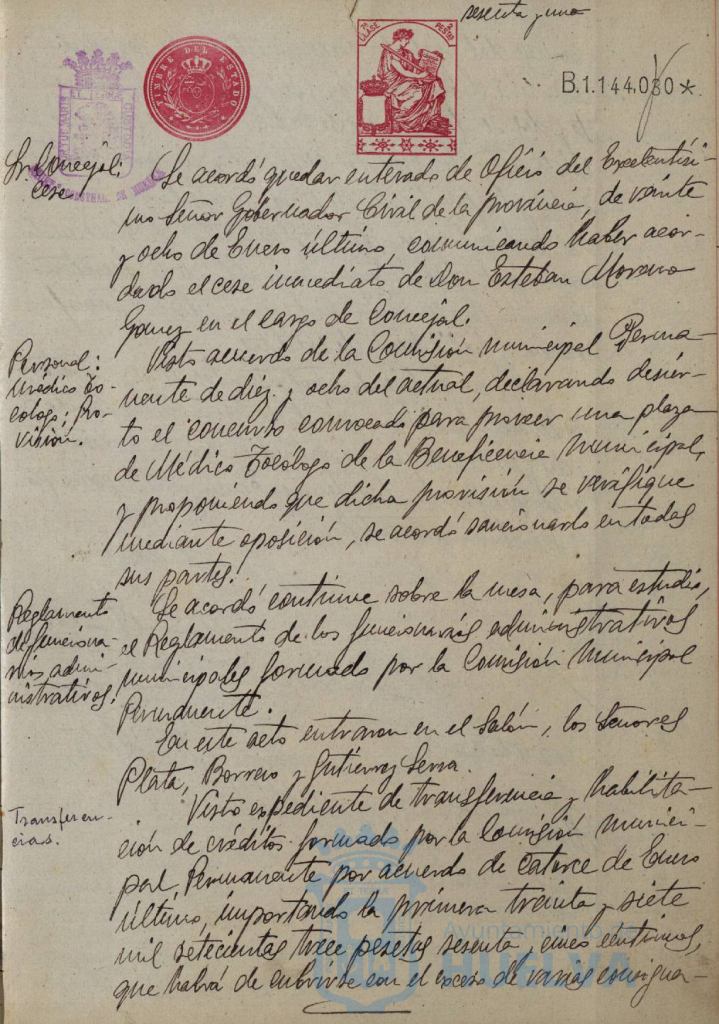 sesenta y uno
TIMBRE DEL ESTADO
7ª CLASE
PESETAS
B.1.144.030 *
Sr. Concejal:
cese
Se acordó quedar enterado de Oficio del Excelentísi-
mo Señor Gobernador Civil de la provincia, de veinte
y ocho de Enero último, comunicando haber acor-
dado el cese inmediato de Don Esteban Moreno
Gómez en el cargo de Concejal.
Personal:
Médico To-
cólogo; Pro-
visión.
Visto acuerdo de la Comisión Municipal Perma-
nente de diez y ocho del actual, declarando desier-
to el concurso convocado para proveer una plaza
de Médico Tocólogo de la Beneficencia Municipal,
y proponiendo que dicha provisión se verifique
mediante oposición, se acordó sancionarlo en todas
sus partes.
Reglamento
de funciona-
rios admi-
nistrativos:
Se acordó continúe sobre la mesa, para estudio,
el Reglamento de los funcionarios administrativos
municipales formado por la Comisión Municipal
Permanente.
En este acto entraron en el Salón, los Señores
Plata, Borrero y Gutiérrez Serra.
Transferen-
cias.
Visto expediente de transferencia y habilita-
ción de créditos formado por la Comisión Munici-
pal Permanente por acuerdo de catorce de Enero
último, importando la primera treinta y siete
mil setecientas trece pesetas sesenta y cinco céntimos,
que habrá de cubrirse con el exceso de varias consigna-
Ayuntamiento de
HUELVA